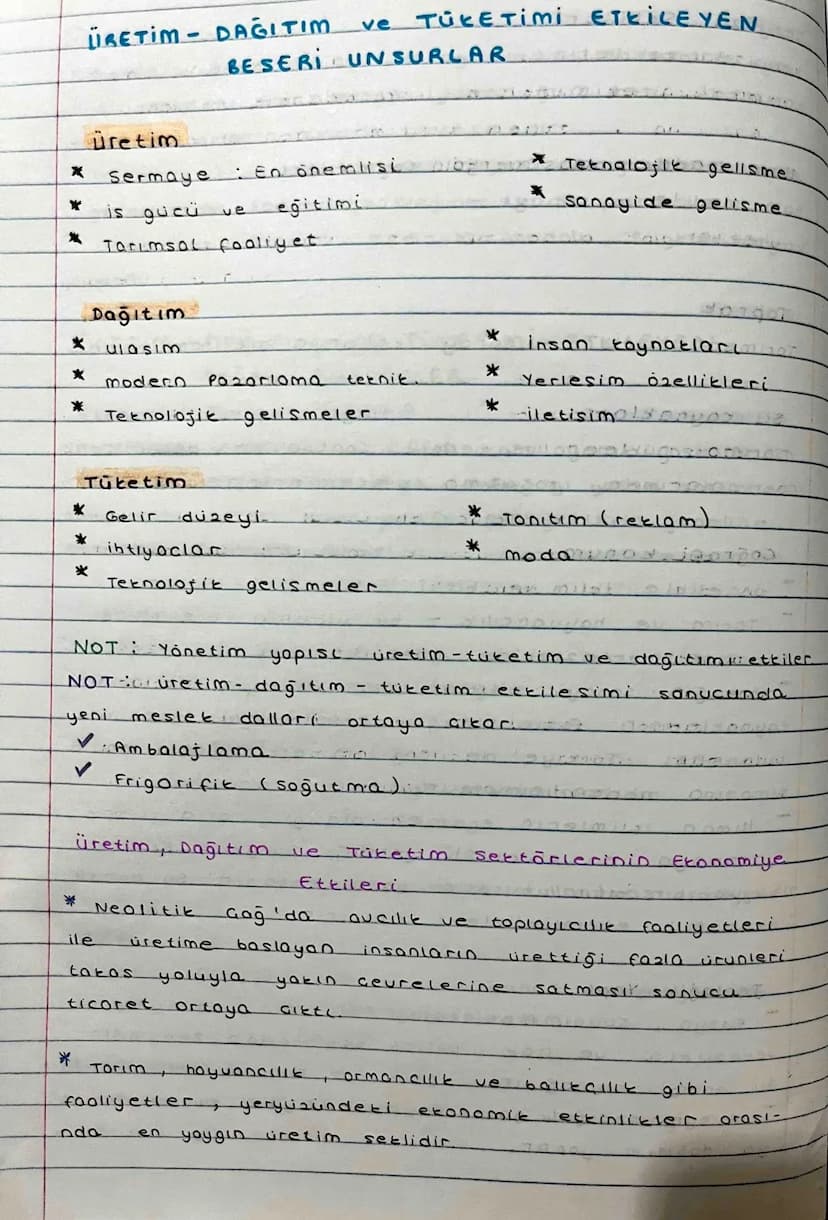 ÜRETİM - DAĞITIM ve TÜKETİMİ ETKİLEYEN
BESERİ UNSURLAR
Üretim
* Sermaye : En önemlisi
* Teknolojik gelisme
* is gücü ve eğitimi
* Sanayide gelisme
* Tarımsal faaliyet
Dağıtım
* ulasım
* İnsan kaynakları
* modern Pazarlama teknik.
* Yerlesim özellikleri
* Teknolojik gelismeler
* İletisim
Tüketim
* Gelir düzeyi
* Tanıtım (reklam)
* ihtiyaclar
* moda
* Teknolojik gelismeler
NOT : Yönetim yapısı üretim-tüketim ve dağıtımı etkiler
NOT : üretim - dağıtım - tüketim etkilesimi sonucunda
yeni meslek dalları ortaya cıkar.
✓ Ambalajlama
✓ Frigorifik (soğutma)
Üretim, Dağıtım ve Tüketim Sektörlerinin Ekonomiye
Etkileri
* Neolitik Cağ'da avcılık ve toplayıcılık faaliyetleri
ile üretime baslayan insanların ürettiği fazla ürünleri
takas yoluyla yakın cevrelerine satması sonucu
ticaret ortaya cıktı.
* Tarım, hayvancılık, ormancılık ve balıkcılık gibi
faaliyetler, yeryüzündeki ekonomik etkinlikler orası-
nda en yaygın üretim seklidir.